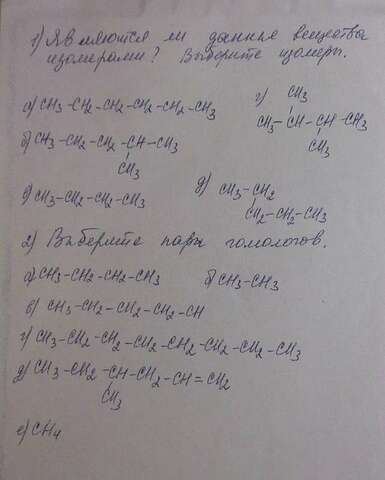 1) Являются ли данные вещества
изомерами? Выберите изомеры.
а) CH3-CH2-CH2-CH2-CH2-CH3
г) CH3
CH3-CH-CH-CH3
CH3
б) CH3-CH2-CH2-CH-CH3
CH3
в) CH3-CH2-CH2-CH3
д) CH3-CH2
CH2-CH2-CH3
2) Выберите пары гомологов.
а) CH3-CH2-CH2-CH3 б) CH3-CH3
в) CH3-CH2-CH2-CH2-CH
г) CH3-CH2-CH2-CH2-CH2-CH2-CH2-CH3
д) CH3-CH2-CH-CH2-CH=CH2
CH3
е) CH4